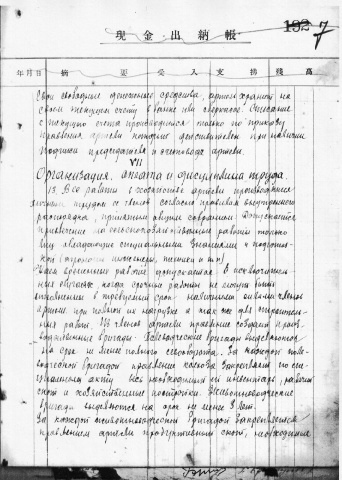 192 7
現金出納帳
年月日 摘要 受入 支拂 殘高
Свои свободные денежные средства, артель хранит на
своем текущем счету в банке или сберкассе. Списание
с текущего счета производится только по приказу
правления артели которые действительны при наличии
подписи председателя и счетовода артели.
VII
Организация, оплата и дисциплина труда.
13. Все работы в хозяйстве артели производятся
личным трудом ее членов согласно правилам внутреннего
распорядка, принятым общим собранием. Допускается
привлечение на сельскохозяйственные работы только
лиц обладающих специальными знаниями и подготов-
кой (агрономы инженеры, техники и т.п)
Наем временных рабочих допускается в исключитель-
ных случаях когда срочные работы не могут быть
выполнены в требуемый срок наличными силами членов
артели при полной их нагрузке а так же для строитель-
ных работ. Из членов артели правление создает произ-
водственные бригады. Полеводческие бригады выделяются
на срок не менее полного севооборота. За каждой поле-
водческой бригадой правление колхоза закрепляет по спе-
циальному акту все необходимый ей инвентарь, рабочий
скот и хозяйственные постройки. Животноводческие
бригады выделяются на срок не менее 3 лет.
За каждой животноводческой бригадой закрепляется
правлением артели продуктивный скот, необходимый